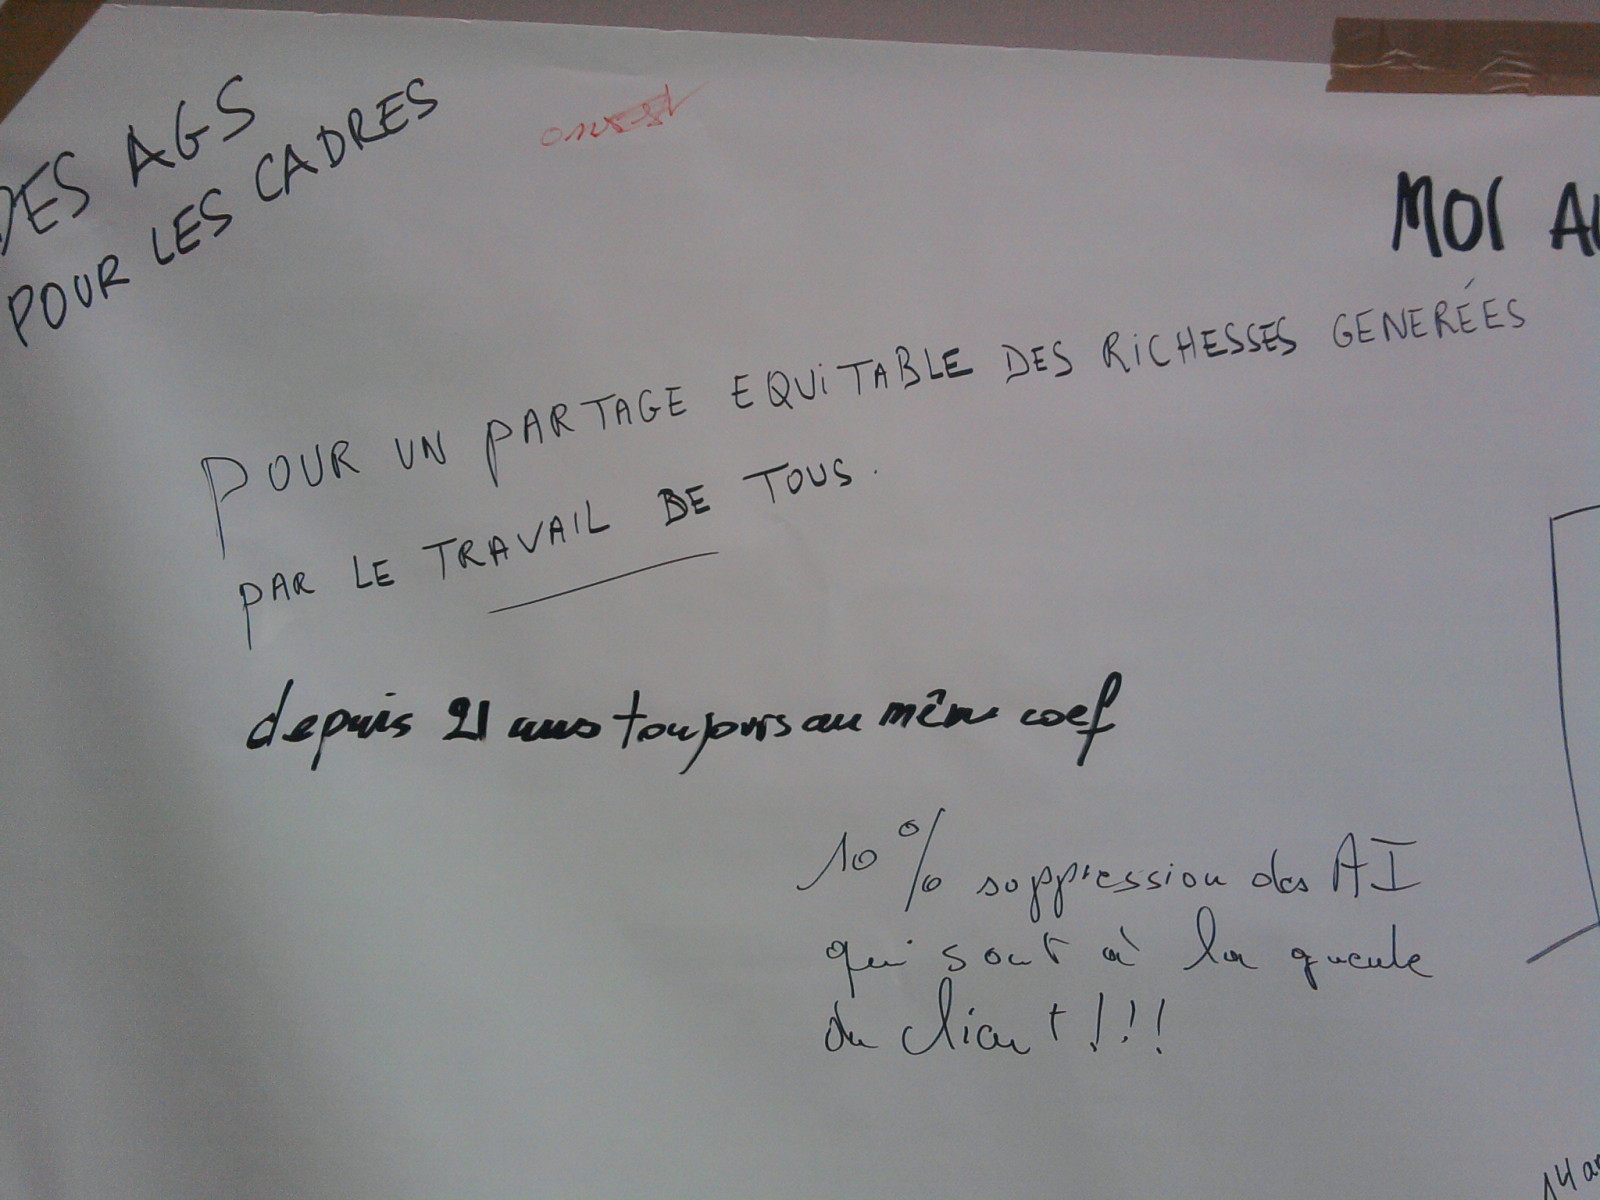 DES AGS
POUR LES CADRES
MOI
POUR UN PARTAGE EQUITABLE DES RICHESSES GENERÉES
PAR LE TRAVAIL DE TOUS.
depuis 21 ans toujours au même coef
10% suppression des AI
qui sont à la gueule
du client!!!
14